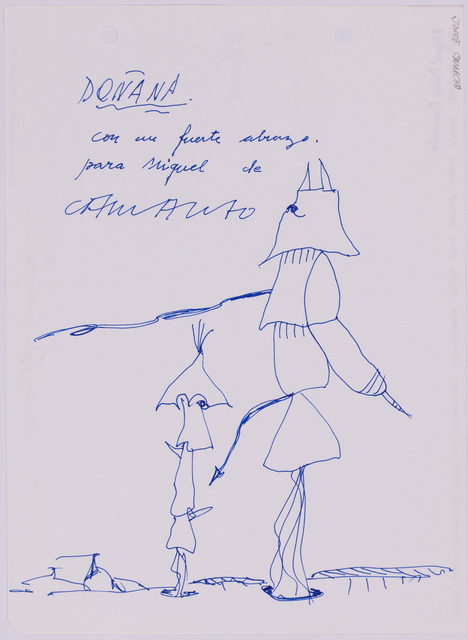 DOÑANA.
con un fuerte abrazo.
para Miguel de